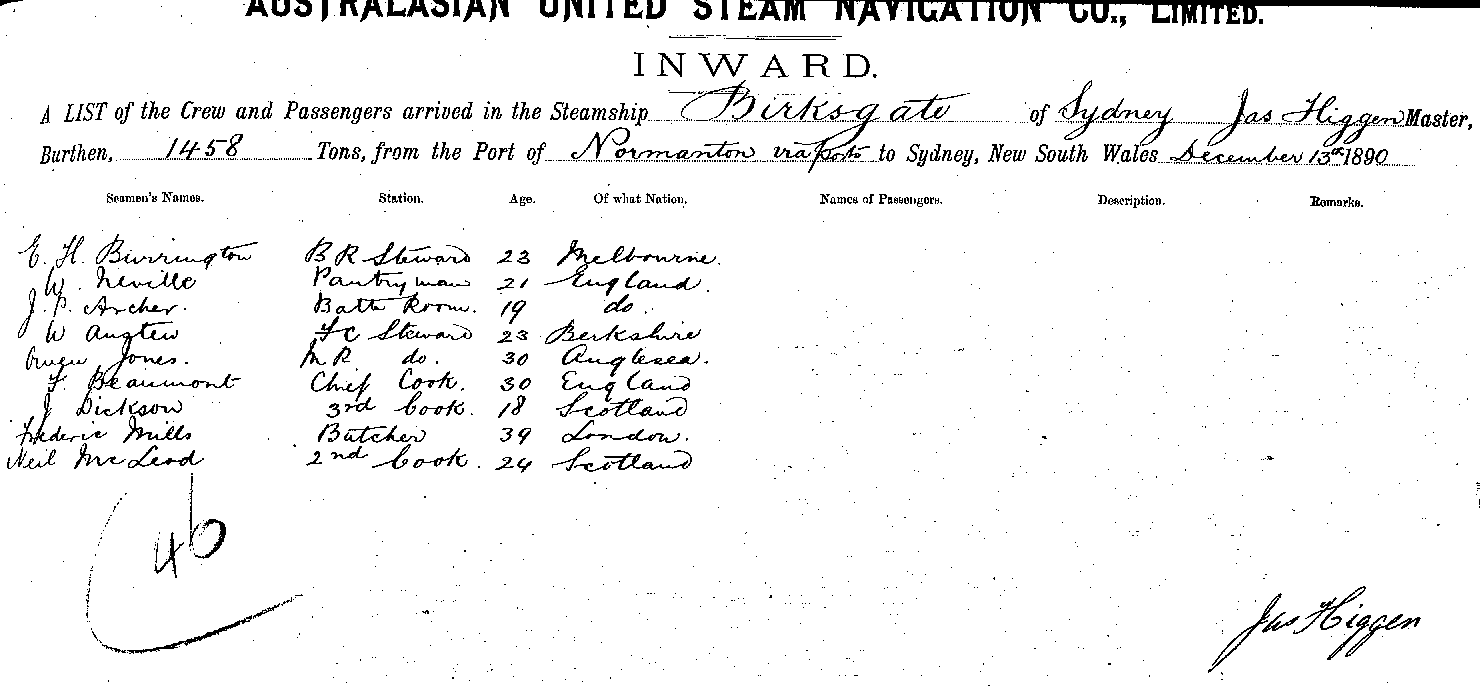 AUSTRALASIAN UNITED STEAM NAVIGATION CO., LIMITED.
INWARD.
A LIST of the Crew and Passengers arrived in the Steamship Birksgate of Sydney Jas Higgen Master,
Burthen, 1458 Tons, from the Port of Normanton via ports to Sydney, New South Wales December 13th 1890
Seamen's Names. Station. Age. Of what Nation. Names of Passengers. Description. Remarks.
E. H. Burrington B R Steward 23 Melbourne.
W. Neville Pantryman 21 England.
J. P. Archer. Bath Room. 19 do.
W Angten F C Steward 23 Berkshire
Owen Jones. M R do. 30 Anglesea.
F. Beaumont Chief Cook. 30 England
J Dickson 3rd Cook. 18 Scotland
Frederic Mills Butcher 39 London.
Neil McLeod 2nd Cook. 24 Scotland
46
Jas Higgen